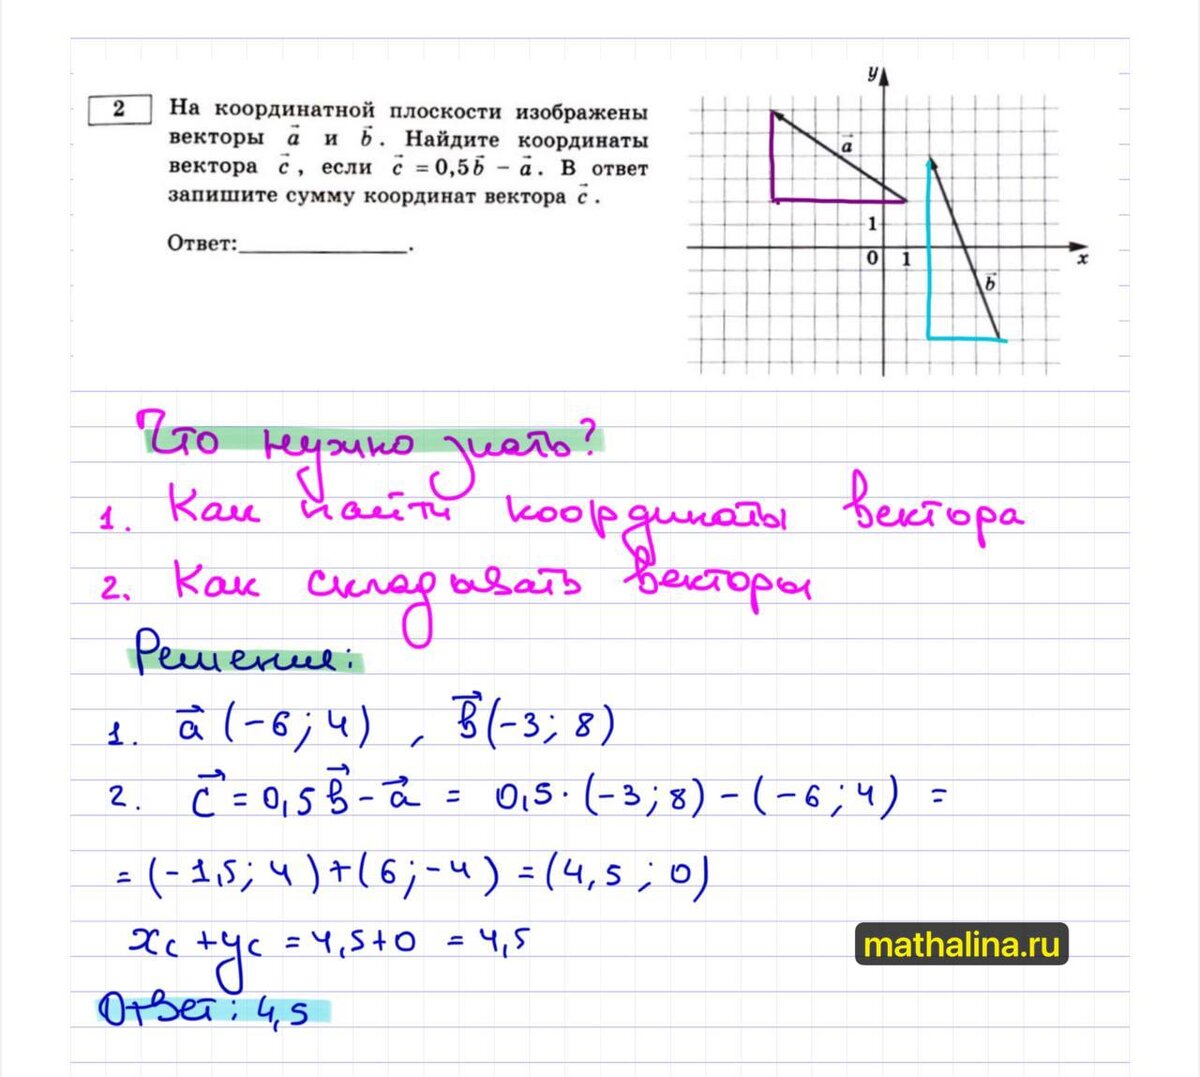 2
На координатной плоскости изображены
векторы a⃗ и b⃗. Найдите координаты
вектора c⃗, если c⃗ = 0,5b⃗ − a⃗. В ответ
запишите сумму координат вектора c⃗.
Ответ:______________.
y
a⃗
1
0 1
x
b⃗
Что нужно знать?
1. Как найти координаты вектора
2. Как складывать векторы
Решение:
1. a⃗ (-6; 4) , b⃗ (-3; 8)
2. c⃗ = 0,5b⃗ - a⃗ = 0,5 · (-3; 8) - (-6; 4) =
= (-1,5; 4) + (6; -4) = (4,5; 0)
xc + yc = 4,5 + 0 = 4,5
mathalina.ru
Ответ: 4,5